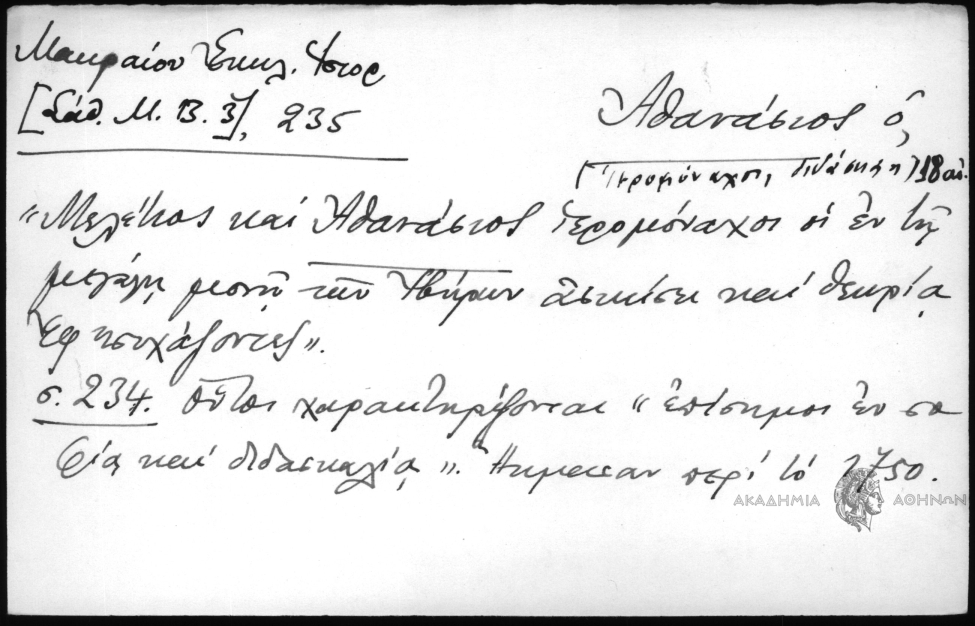 Μακραίου Ἐκκλ. Ἱστορ
[Σάθ. Μ. Β. Γ], 235
Ἀθανάσιος ὁ,
(Ἱερομόναχος, διδάσκαλ) 18 αἰ.
"Μελέτιος καὶ Ἀθανάσιος ἱερομόναχοι οἱ ἐν τῇ
μεγάλῃ μονῇ τῶν Ἰβήρων ἀσκήσει καὶ θεωρίᾳ
ἐφησυχάζοντες".
σ. 234. Οὗτοι χαρακτηρίζονται "ἐπίσημοι ἐν σο
φίᾳ καὶ διδασκαλίᾳ". Ἤκμασαν περὶ τὸ 1750.
ΑΚΑΔΗΜΙΑ ΑΘΗΝΩΝ